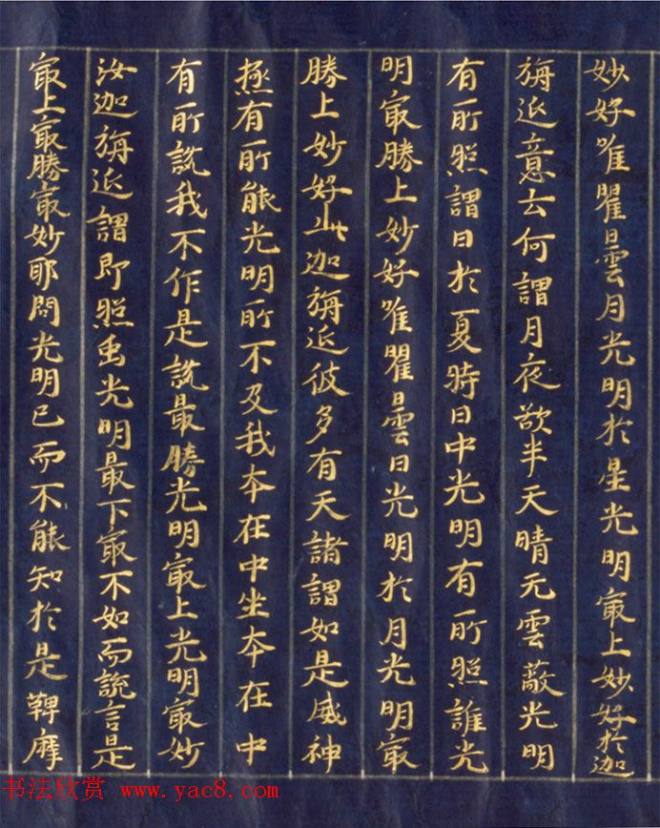 妙好唯瞿曇月光明於星光明㝡上妙好於迦
旃延意云何謂月夜欲半天晴无雲蔽光明
有所照謂日於夏時日中光明有所照誰光
明㝡勝上妙好唯瞿曇日光明於月光明㝡
勝上妙好此迦旃延彼多有天諸謂如是威神
極有所能光明所不及我本在中坐本在中
有所說我不作是說最勝光明㝡上光明㝡妙
汝迦旃延謂即照虫光明最下㝡不如而說言是
㝡上㝡勝㝡妙耶問光明已而不能知於是鞞摩
书法欣赏 www.yac8.com